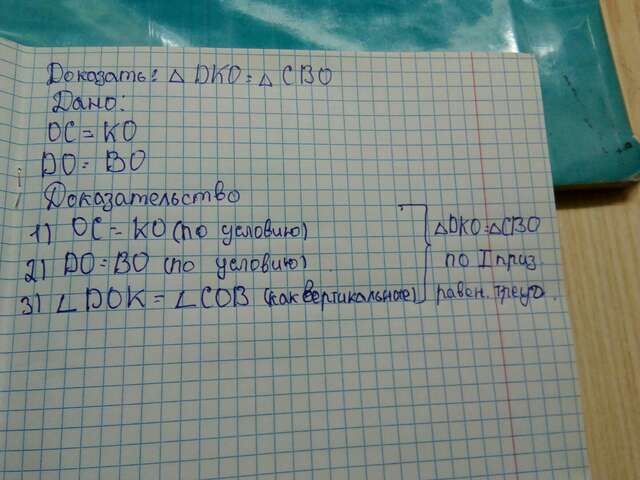 Доказать: △ DKO = △ CBO
Дано:
OC = KO
DO = BO
Доказательство
1) OC = KO (по условию)
2) DO = BO (по условию)
3) ∠DOK = ∠COB (как вертикальные)
△DKO = △CBO
по I приз.
равен. треуг.